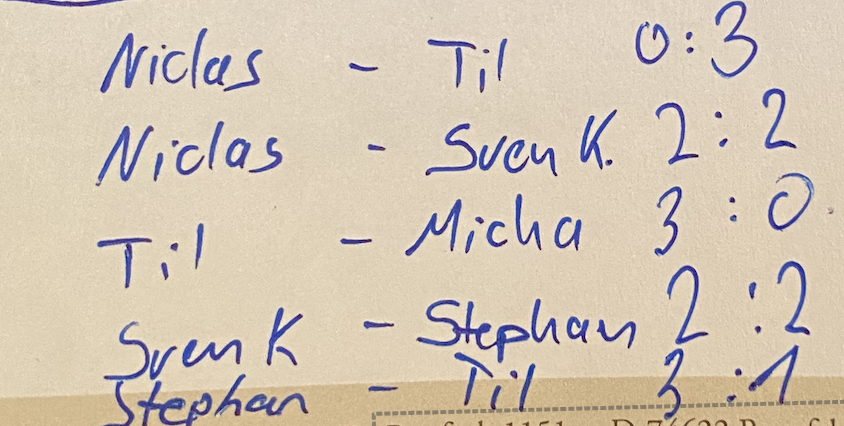 Niclas - Til 0:3
Niclas - Sven K. 2:2
Til - Micha 3:0
Sven K - Stephan 2:2
Stephan - Til 3:1